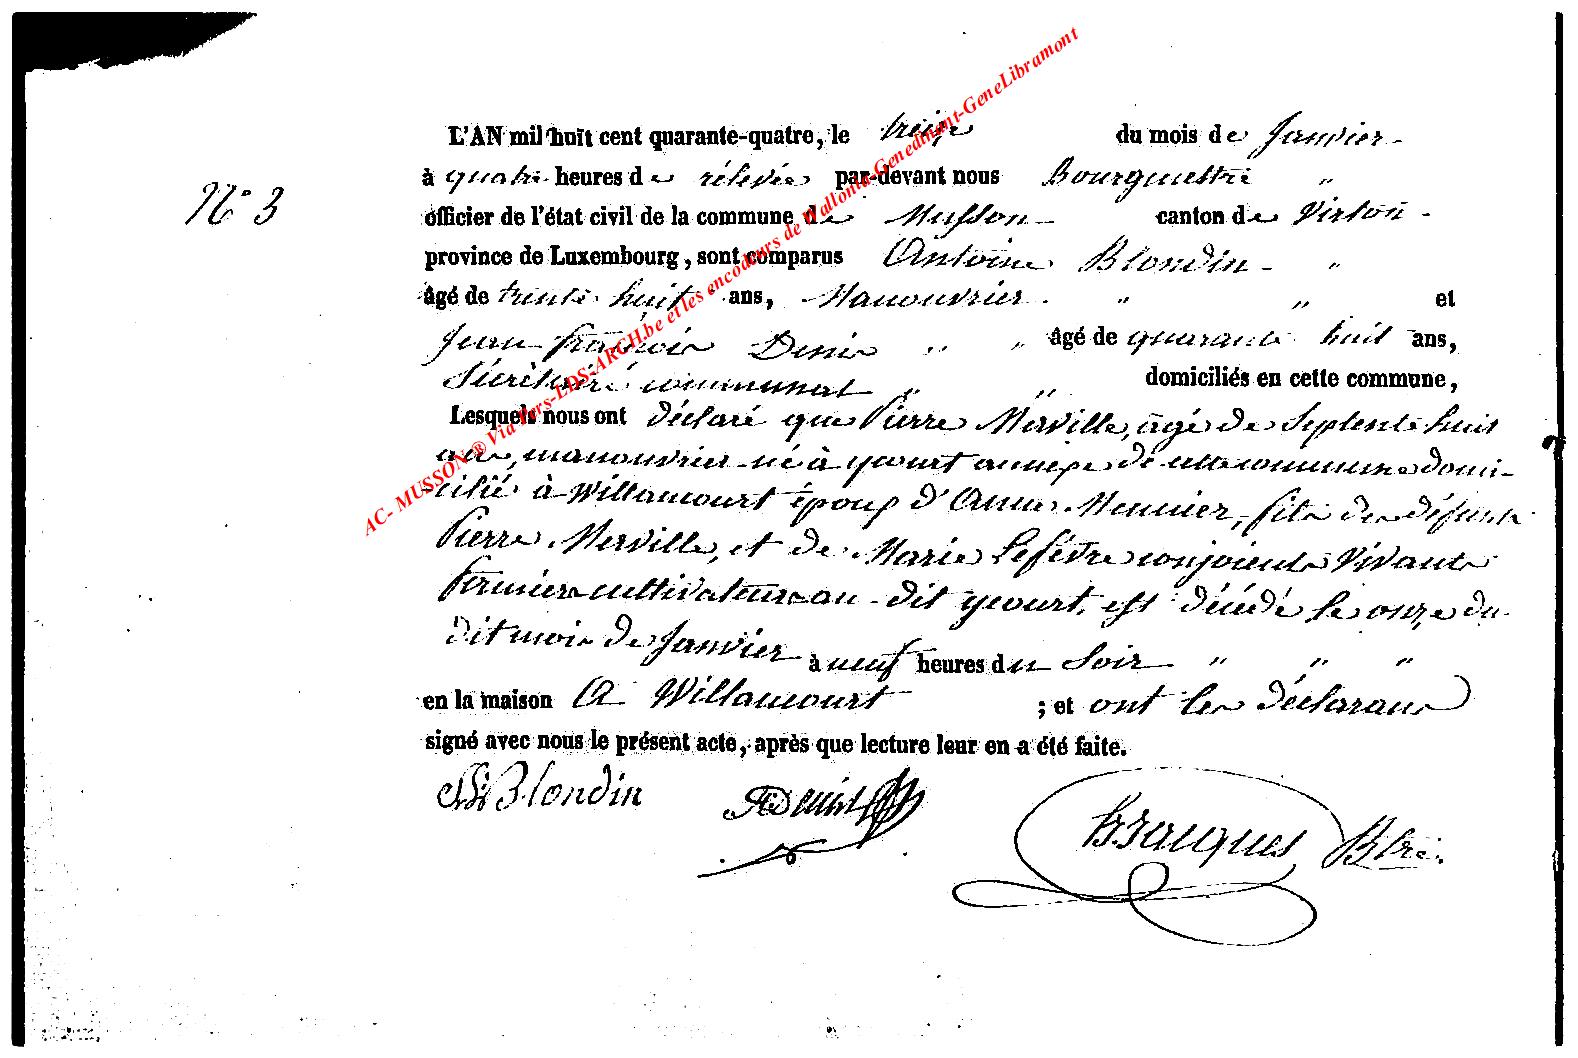 L'AN mil huit cent quarante-quatre, le treize du mois de Janvier
N° 3
à quatre heures de rélevée par-devant nous Bourgmestre "
officier de l'état civil de la commune de Musson canton de Virton
province de Luxembourg, sont comparus Antoine Blondin "
âgé de trente huit ans, Manouvrier " " et
Jean françois Denis " " âgé de quarante huit ans,
Sécrétaire communal " " domiciliés en cette commune,
Lesquels nous ont déclaré que Pierre Merville, âgé de Septente huit
ans, manouvrier né à ycourt annexe de cette commune domi-
cilié à Willancourt époux d'Anne Meunier, fils de défunts
Pierre Merville, et de Marie Lefévre conjoients Vivants
fermiers cultivateurs au dit ycourt, est décédé le onze du
dit mois de Janvier à neuf heures du Soir " " "
en la maison A Willancourt ; et ont les déclarans
signé avec nous le présent acte, après que lecture leur en a été faite.
Blondin Denis Jacques Btre.
AC- MUSSON ® Via Vers-LDS-ARCH.be et les encodeurs de Wallonia-Genedinant-GeneLibramont